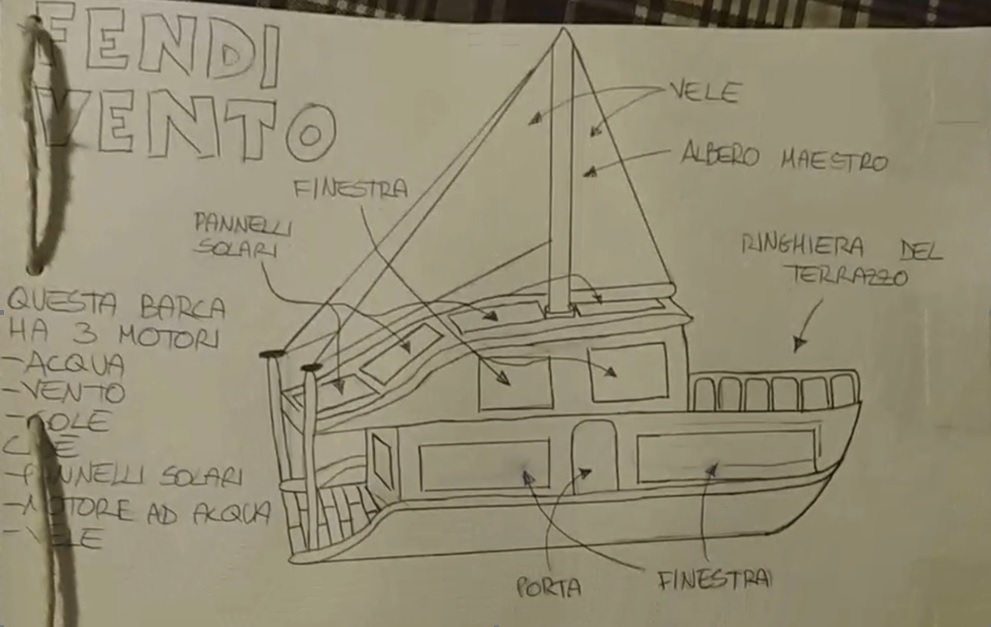 FENDI
VENTO
VELE
ALBERO MAESTRO
FINESTRA
PANNELLI
SOLARI
RINGHIERA DEL
TERRAZZO
QUESTA BARCA
HA 3 MOTORI
-ACQUA
-VENTO
-SOLE
-PANNELLI SOLARI
-MOTORE AD ACQUA
-VELE
PORTA
FINESTRA